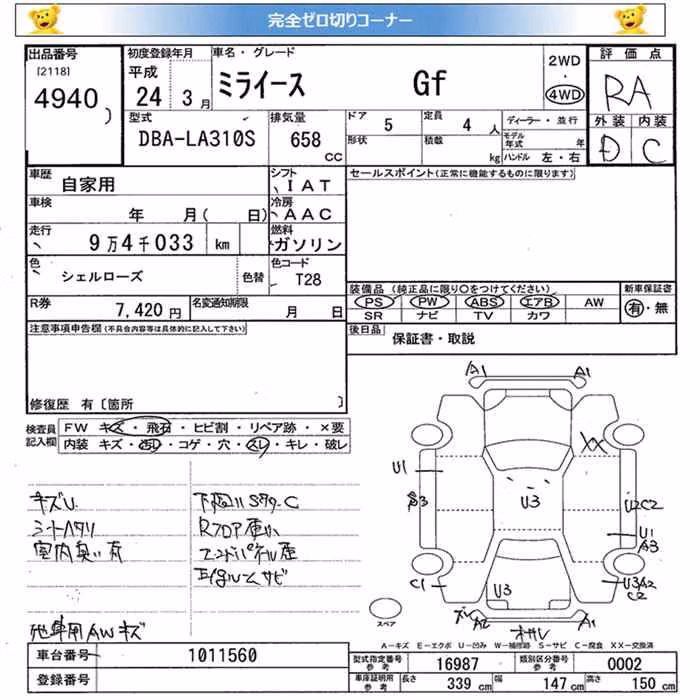 完全ゼロ切りコーナー
出品番号
[2118]
4940
初度登録年月
平成
24 3月
車名・グレード
ミライース Gf
2WD
・
4WD
評価点
RA
外装 内装
D C
型式
DBA-LA310S
排気量
658
CC
ドア 5
定員 4人
形状
積載 kg
ディーラー・並行
モデル年式 年
ハンドル 左・右
車歴
自家用
シフト
IAT
セールスポイント(正常に機能するものに限ります)
車検
年 月( 日)
冷房
AAC
走行
9万4千033 km
燃料
ガソリン
色
シェルローズ
色替
色コード
T28
装備品 (純正品に限り○をつけてください)
PS PW ABS エアB AW
SR ナビ TV カワ
新車保証書
有・無
R券
7,420円
名変通知期限
月 日
後日品
保証書・取説
注意事項申告欄(不具合内容等は具体的に記入して下さい)
修復歴 有〔箇所 〕
検査員記入欄
FW キズ・飛石・ヒビ割・リペア跡・×要
内装 キズ・汚れ・コゲ・穴・スレ・キレ・破レ
キズU
シートヘタリ
室内臭い有
下廻りSケワ-C
Rフロア歪み
エンドパネル歪
他車用AWキズ
A1 A1
XX
U1
U3
U2C2
U1
A3
C1
U3
U3A2
C2
A2
A1
スペア
A−キズ E−エクボ U−凹み W−補修跡 S−サビ C−腐食 XX−交換済
車台番号 1011560
登録番号
型式指定番号参考 16987
類別区分番号参考 0002
車庫証明用参考 長さ 339cm 幅 147cm 高さ 150cm